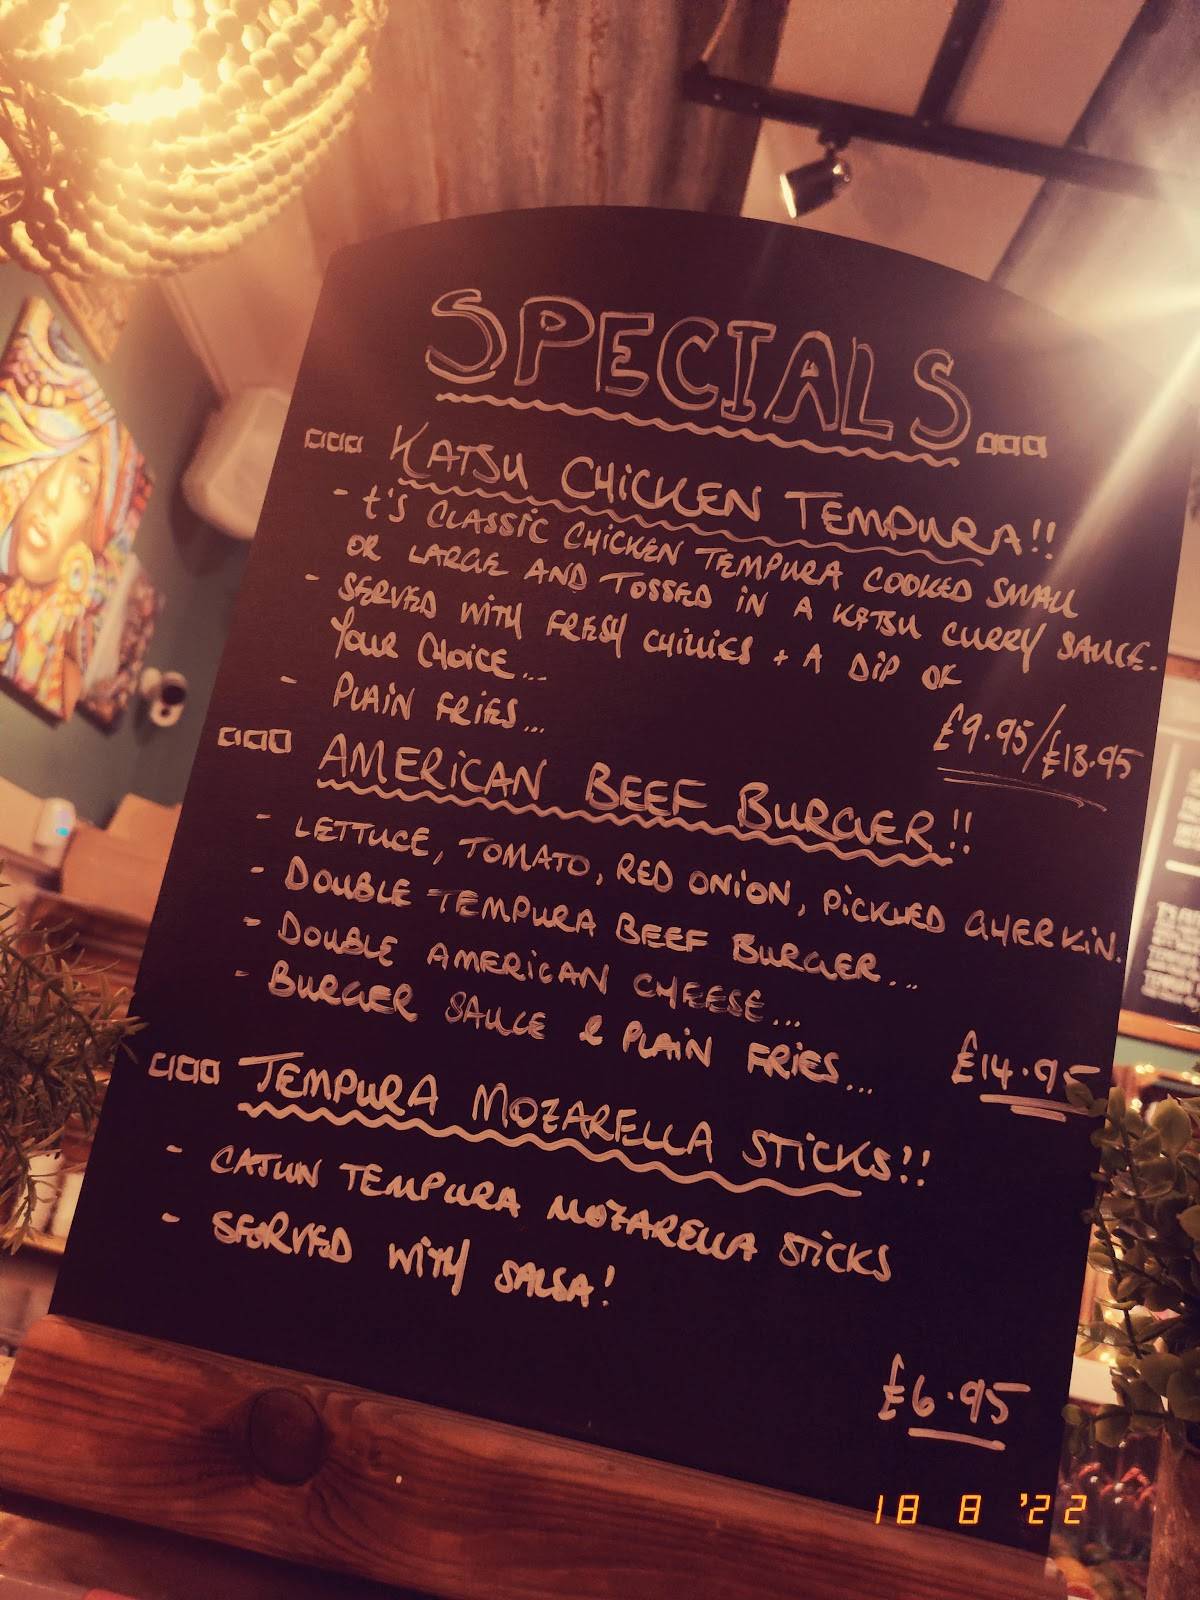 SPECIALS
KATSU CHICKEN TEMPURA!!
- t's CLASSIC CHICKEN TEMPURA COOKED SMALL
OR LARGE AND TOSSED IN A KATSU CURRY SAUCE.
- SERVED WITH FRESH CHILLIES + A DIP OF
YOUR CHOICE...
- PLAIN FRIES...
£9.95/£13.95
AMERICAN BEEF BURGER!!
- LETTUCE, TOMATO, RED ONION, PICKLED GHERKIN.
- DOUBLE TEMPURA BEEF BURGER...
- DOUBLE AMERICAN CHEESE...
- BURGER SAUCE & PLAIN FRIES...
£14.95
TEMPURA MOZARELLA STICKS!!
- CAJUN TEMPURA MOZARELLA STICKS
- SERVED WITH SALSA!
£6.95
18 8 '22